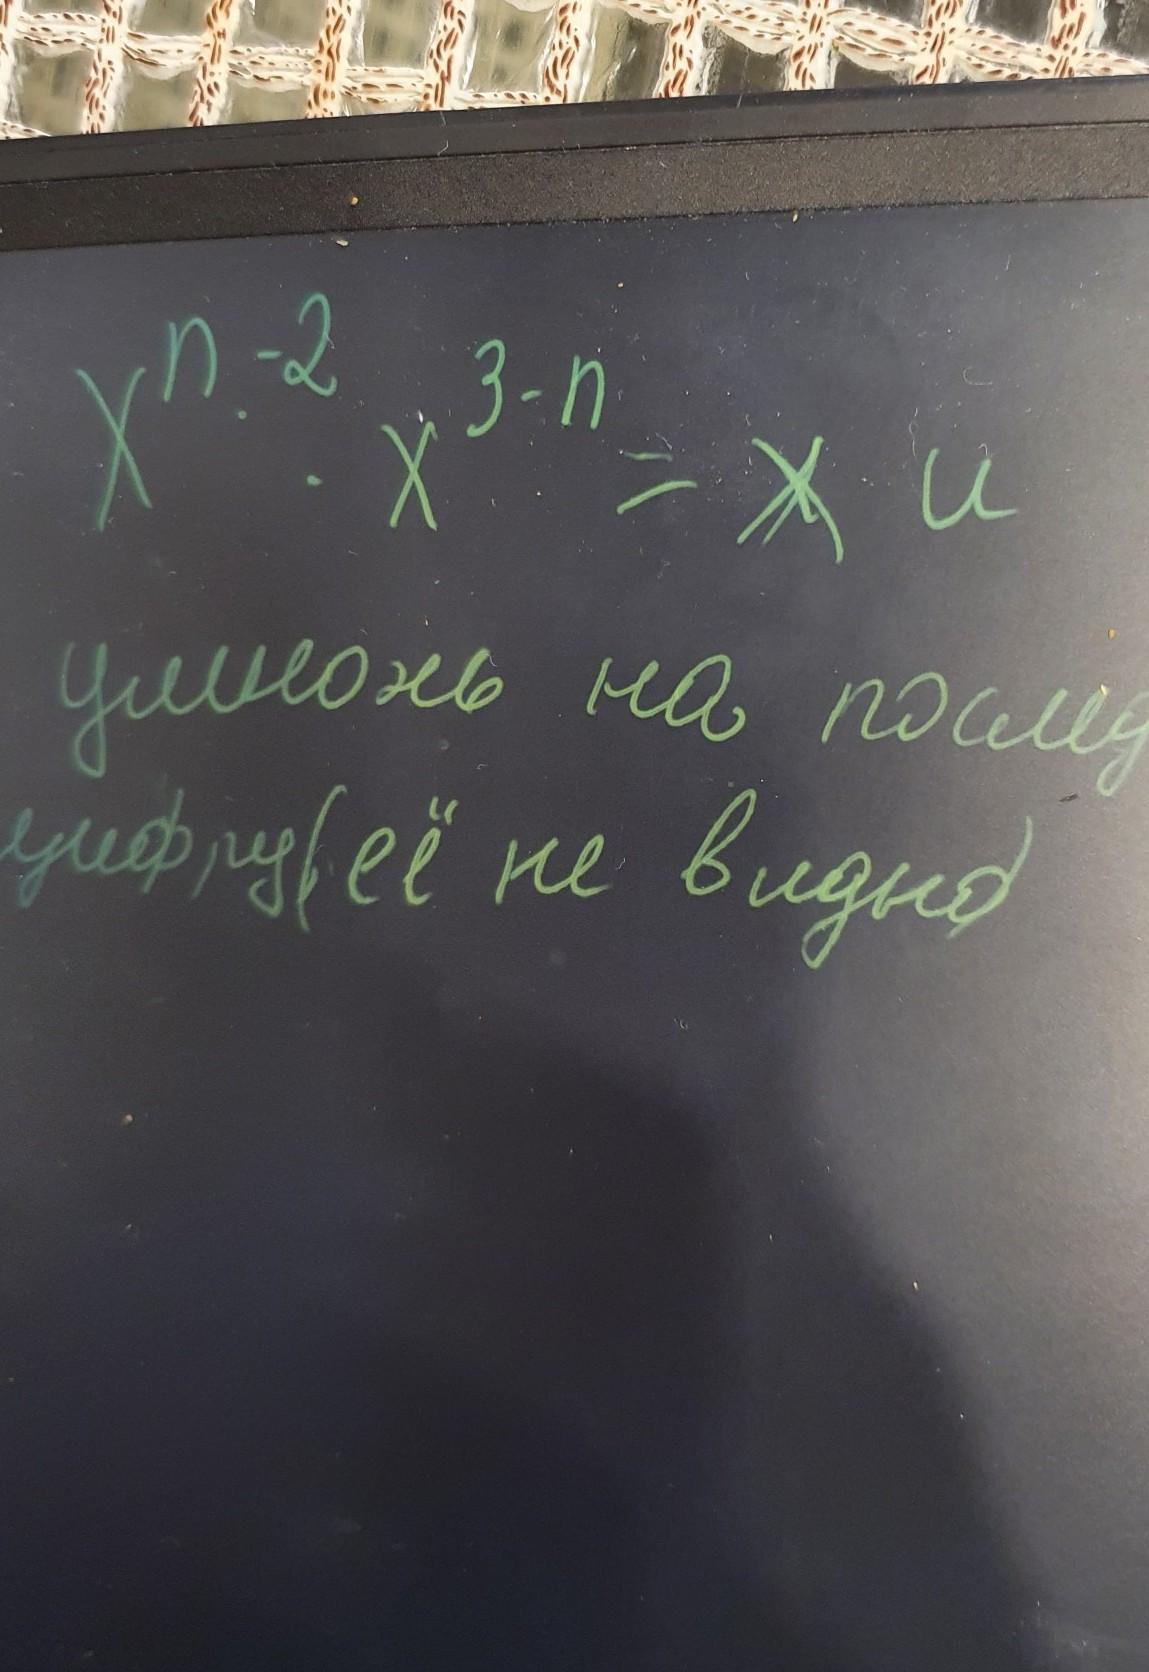 xⁿ⁻² · x³⁻ⁿ = x и
умножь на послед
цифру (её не видно)